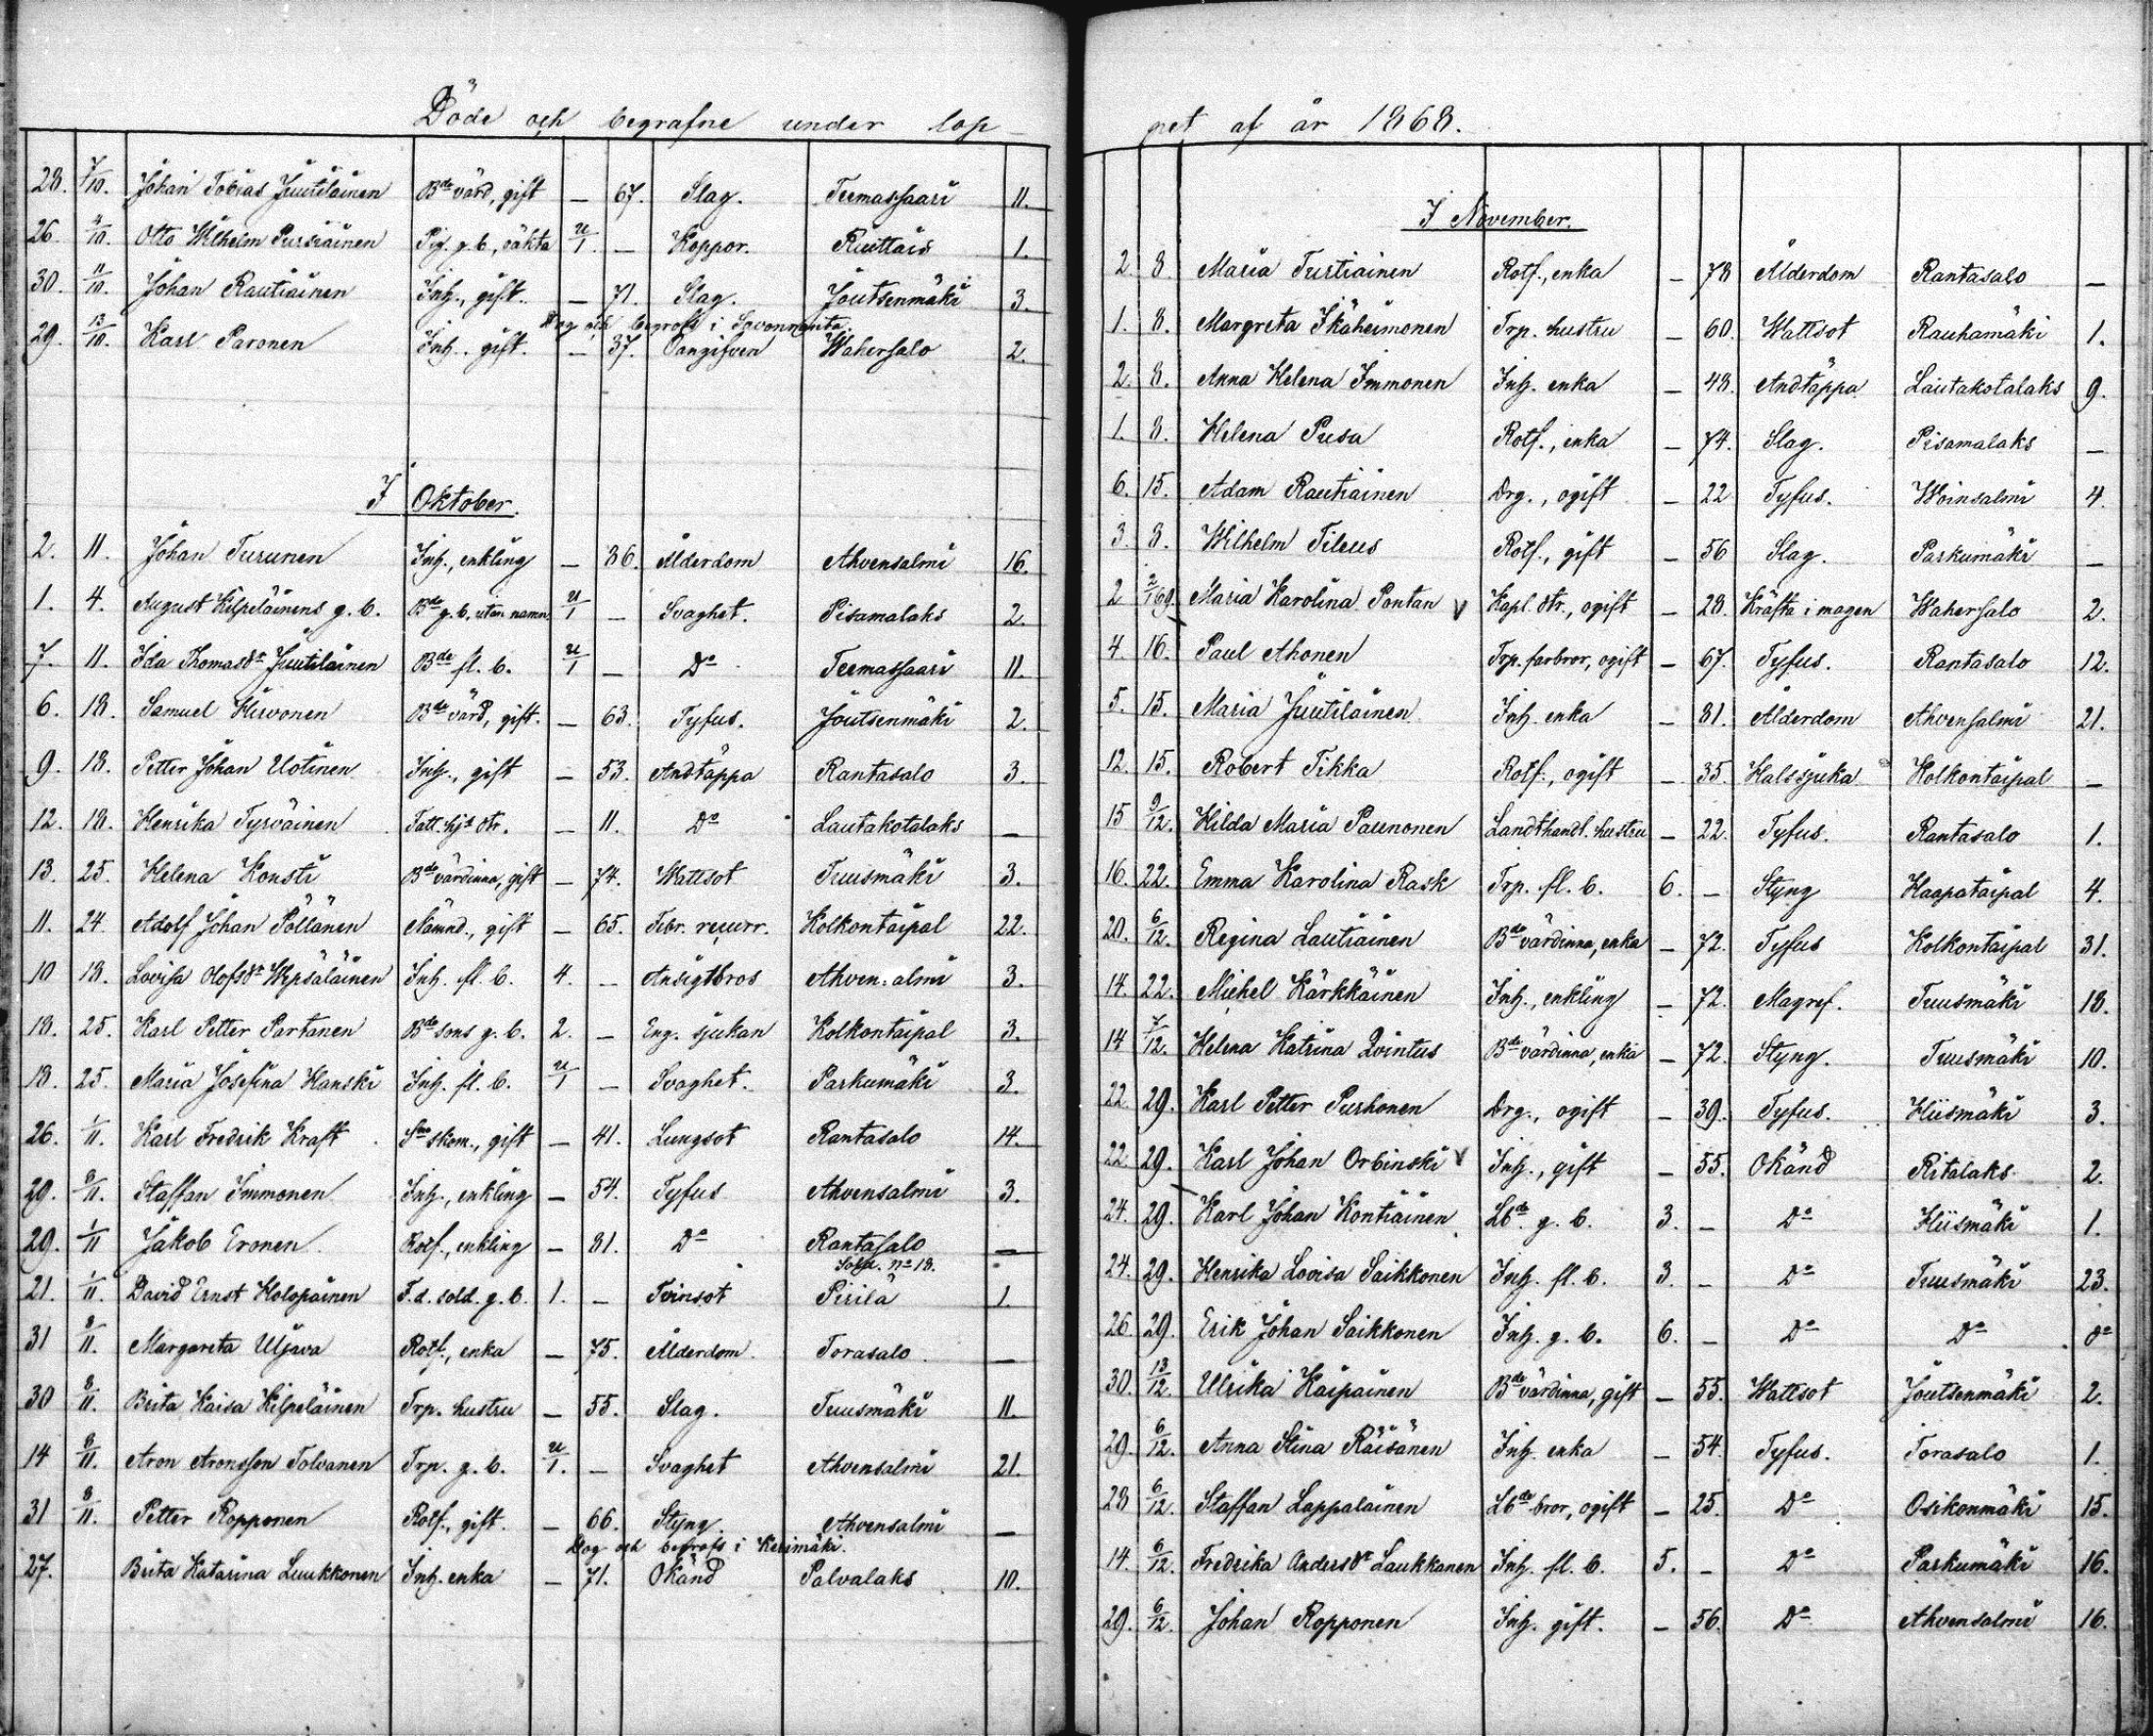 Döde och begrafne under lop-
28. 7/10. Johan Tobias Juutilainen Bde värd, gift — 67. Slag. Teemassaari 11.
26. 4/10. Otto Wilhelm Pursiainen Pig. g. b., oäkta u/1. — Koppor. Ruuttais 1.
30. 11/10. Johan Rautiainen Inh., gift. — 71. Slag. Joutsenmäki 3.
Dog och begrofs i Savonranta.
29. 13/10. Karl Paronen Inh. gift. — 37. Oangifven Wahersalo 2.
I Oktober.
2. 11. Johan Turunen Inh., enkling — 86. Ålderdom Ahvensalmi 16.
1. 4. August Kilpeläinens g. b. Bde g. b. utan namn. u/1 — Svaghet. Pisamalaks 2.
7. 11. Ida Thomasdr Juutilainen Bde fl. b. u/1 — Do Teemassaari 11.
6. 18. Samuel Hirvonen Bde värd, gift. — 63. Tyfus. Joutsenmäki 2.
9. 18. Petter Johan Uotinen Inh., gift — 53. Andtäppa Rantasalo 3.
12. 18. Henrika Tyrväinen Fatt. hj. dtr. — 11. Do Lautakotalaks —
13. 25. Helena Konsti Bde värdinna, gift — 74. Wattsot Tuusmäki 3.
11. 24. Adolf Johan Pöllänen Nämnd., gift — 65. Febr. recurr. Kolkontaipal 22.
10 18. Lovisa Olofsdr Wepsäläinen Inh. fl. b. 4. — Ansigtsros Ahvensalmi 3.
18. 25. Karl Petter Partanen Bde sons g. b. 2. — Eng. sjukan Kolkontaipal 3.
18. 25. Maria Josefina Hanski Inh. fl. b. u/1 — Svaghet. Parkumäki 3.
26. 1/11. Karl Fredrik Kraft Sne skom., gift — 41. Lungsot Rantasalo 14.
29. 8/11. Staffan Immonen Inh., enkling — 54. Tyfus Ahvensalmi 3.
29. 1/11 Jakob Eronen Rotf., enkling — 81. Do Rantasalo —
Sold. No 18.
21. 1/11. David Ernst Holopainen F. d. sold. g. b. 1. — Tvinsot Pirilä 1.
31 8/11. Margareta Uljava Rotf., enka — 75. Ålderdom. Torasalo —
30 8/11. Brita Kaisa Kilpeläinen Trp. hustru — 55. Slag. Tuusmäki 11.
14 8/11. Aron Aronsson Tolvanen Trp. g. b. u/1. — Svaghet Ahvensalmi 21.
31 8/11. Petter Ropponen Rotf., gift. — 66. Styng. Ahvensalmi —
Dog och begrofs i Kerimäki.
27. Brita Katarina Luukkonen Inh. enka — 71. Okänd Palvalaks 10.
pet af år 1868.
I November.
2. 8 Maria Turtiainen Rotf., enka — 78 Ålderdom Rantasalo —
1. 8. Margreta Ikäheimonen Trp. hustru — 60. Wattsot Rauhamäki 1.
2. 8. Anna Helena Immonen Inh. enka — 48. Andtäppa. Lautakotalaks 9.
1. 8. Helena Pusa Rotf., enka — 74. Slag. Pisamalaks —
6. 15. Adam Rautiainen Drg., ogift — 22 Tyfus. Woinsalmi 4.
3. 8. Wilhelm Tileus Rotf., gift — 56 Slag. Parkumäki —
2 2/1 69. Maria Karolina Pontan v Kapl. dtr., ogift — 28. Kräfta i magen Wahersalo 2.
4. 16. Paul Ahonen Trp. farbror, ogift — 67. Tyfus. Rantasalo 12.
5. 15. Maria Juutilainen Inh. enka — 81. Ålderdom Ahvensalmi 21.
12. 15. Robert Tikka Rotf., ogift — 35. Halssjuka Kolkontaipal —
15 9/12. Hilda Maria Paunonen Landthandl. hustru — 22. Tyfus. Rantasalo 1.
16. 22. Emma Karolina Rask Trp. fl. b. 6. — Styng Haapataipal 4.
20. 6/12. Regina Lautiainen Bde värdinna, enka — 72. Tyfus Kolkontaipal 31.
14. 22. Michel Kärkkäinen Inh., enkling — 72. Magref. Tuusmäki 18.
14 7/12. Helena Katrina Qvintus Bde värdinna, enka — 72. Styng. Tuusmäki 10.
22. 29. Karl Petter Purhonen Drg., ogift — 39. Tyfus. Hiismäki 3.
22. 29. Karl Johan Orbinski v Inh., gift — 55. Okänd Ritalaks 2.
24. 29. Karl Johan Kontiainen Lbde g. b. 3. — Do Hiismäki 1.
24. 29. Henrika Lovisa Saikkonen Inh. fl. b. 3. — Do Tuusmäki 23.
26. 29. Erik Johan Saikkonen Inh. g. b. 6. — Do Do do
30. 13/12. Ulrika Kaipainen Bde värdinna, gift — 55. Wattsot Joutsenmäki 2.
29. 6/12. Anna Stina Räisänen Inh. enka — 54. Tyfus. Torasalo 1.
28 6/12. Staffan Lappalainen Lbde bror, ogift — 25. Do Osikonmäki 15.
14. 6/12. Fredrika Andersdr Laukkanen Inh. fl. b. 5. — Do Parkumäki 16.
29. 6/12. Johan Ropponen Inh. gift. — 56. Do Ahvensalmi 16.